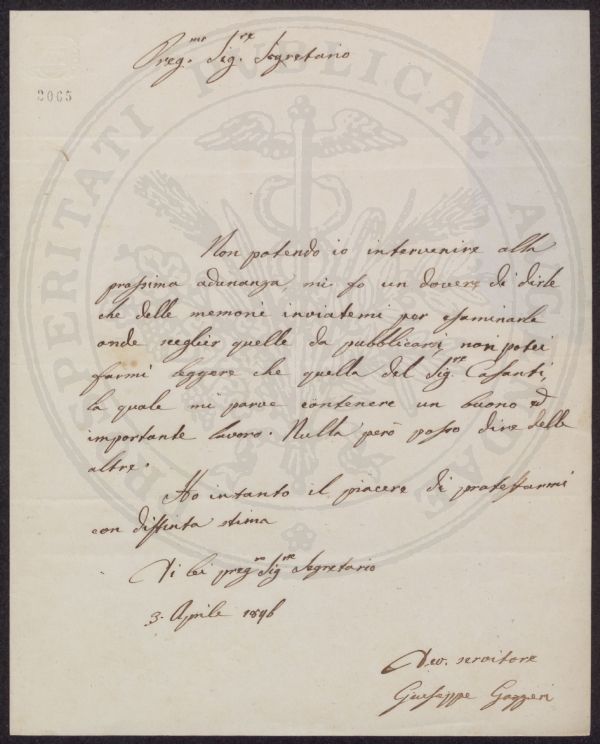 Preg.mo Sig.re Segretario
2065
PROSPERITATI PUBLICAE AUGENDAE
Non potendo io intervenire alla
prossima adunanza, mi fo un dovere di dirle
che delle memorie inviatemi per esaminarle
onde sceglier quelle da pubblicarsi non potei
farmi leggere che quella del Sig.re Casanti,
la quale mi parve contenere un buono ed
importante lavoro. Nulla però posso dire delle
altre.
Ho intanto il piacere di protestarmi
con distinta stima
Di lei preg.mo Sig.re Segretario
3. Aprile 1846
Dev. servitore
Giuseppe Gazzeri